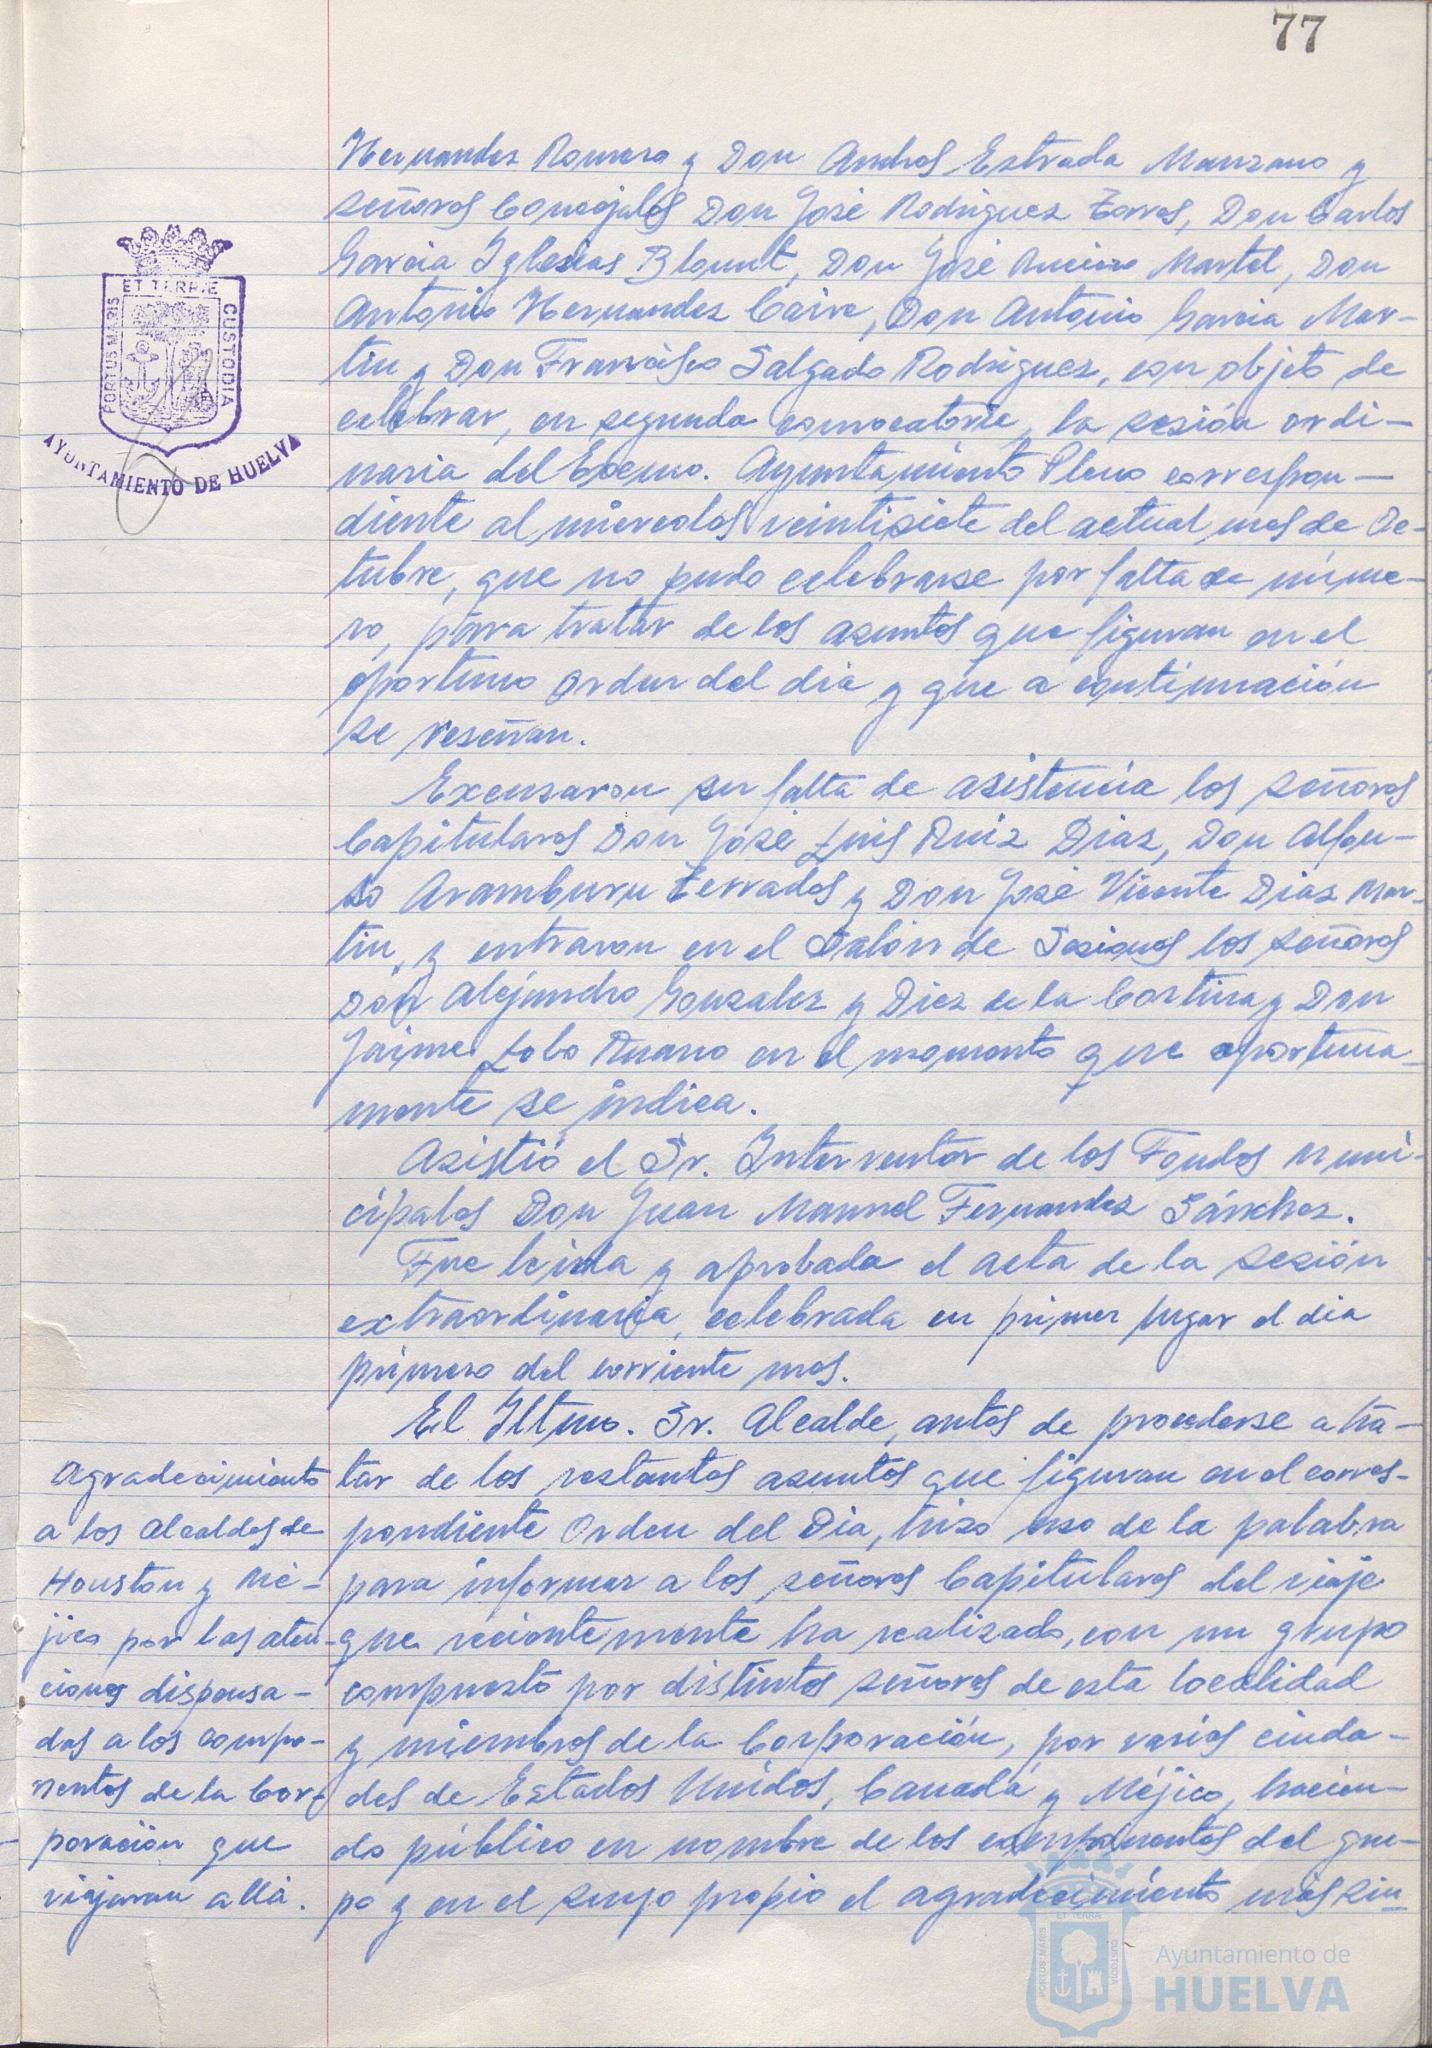 77
Hernandez Romero y Don Andres Estrada Manzano y
señores Concejales Don José Rodriguez Torres, Don Carlos
Garcia Iglesias Blount, Don José Martel, Don
Antonio Hernandez Caire, Don Antonio Garcia Mar-
tin y Don Francisco Salgado Rodriguez, con objeto de
celebrar, en segunda convocatoria, la sesión ordi-
naria del Excmo. Ayuntamiento Pleno correspon-
diente al miercoles veintisiete del actual mes de Oc-
tubre, que no pudo celebrarse por falta de núme-
ro, para tratar de los asuntos que figuran en el
oportuno Orden del dia y que a continuación
se reseñan.
Excusaron su falta de asistencia los señores
Capitulares Don José Luis Ruiz Diaz, Don Alfon-
so Aramburu Terrades y Don José Vicente Diaz Mar-
tin, y entraron en el Salón de Sesiones los señores
Don Alejandro Gonzalez y Diez de la Cortina y Don
Jaime Lobo Ruano en el momento que oportuna-
mente se indica.
Asistió el Sr. Interventor de los Fondos Muni-
cipales Don Juan Manuel Fernandez Sánchez.
Fue leida y aprobada el acta de la sesión
extraordinaria, celebrada en primer lugar el dia
primero del corriente mes.
El Iltmo. Sr. Alcalde, antes de procederse a tra-
tar de los restantes asuntos que figuran en el corres-
pondiente Orden del Dia, hizo uso de la palabra
para informar a los señores Capitulares del viaje
que recientemente ha realizado, con un grupo
compuesto por distintos señores de esta localidad
y miembros de la Corporación, por varias ciuda-
des de Estados Unidos, Canadá y Méjico, hacien-
do público en nombre de los componentes del gru-
po y en el suyo propio el agradecimiento más sin-
Agradecimiento
a los Alcaldes de
Houston y Mé-
jico por las aten-
ciones dispensa-
das a los compo-
nentes de la Cor-
poración que
viajaron allá.
PORTUS MARIS ET TERRAE CUSTODIA
AYUNTAMIENTO DE HUELVA
PORTUS MARIS ET TERRA CUSTODIA
Ayuntamiento de
HUELVA